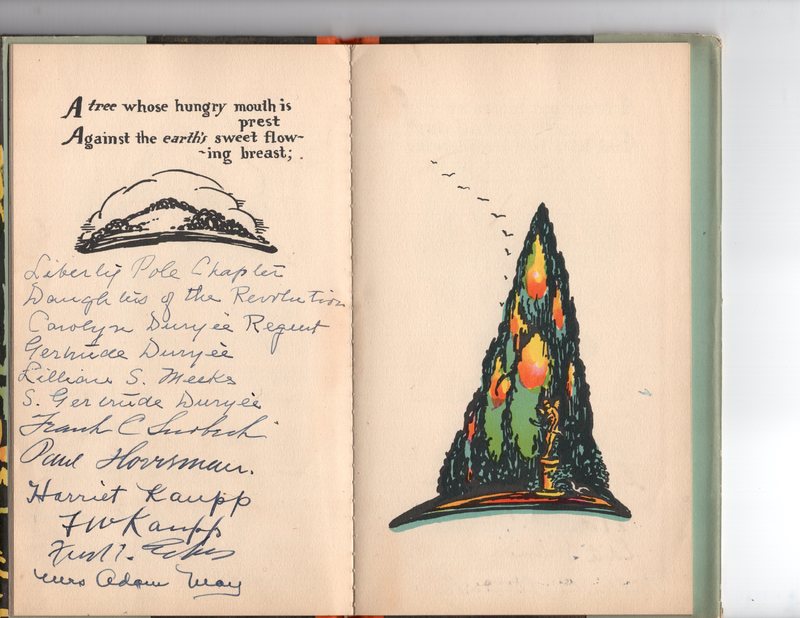 A tree whose hungry mouth is
prest
Against the earth's sweet flow-
-ing breast;
Liberty Pole Chapter
Daughters of the Revolution
Carolyn Duryèe Regent
Gertrude Duryèe
Lillian S. Meeks
S. Gertrude Duryèe
Frank C
Paul Horrsman.
Harriet Kaupp
F W Kaupp
Mrs Adam May